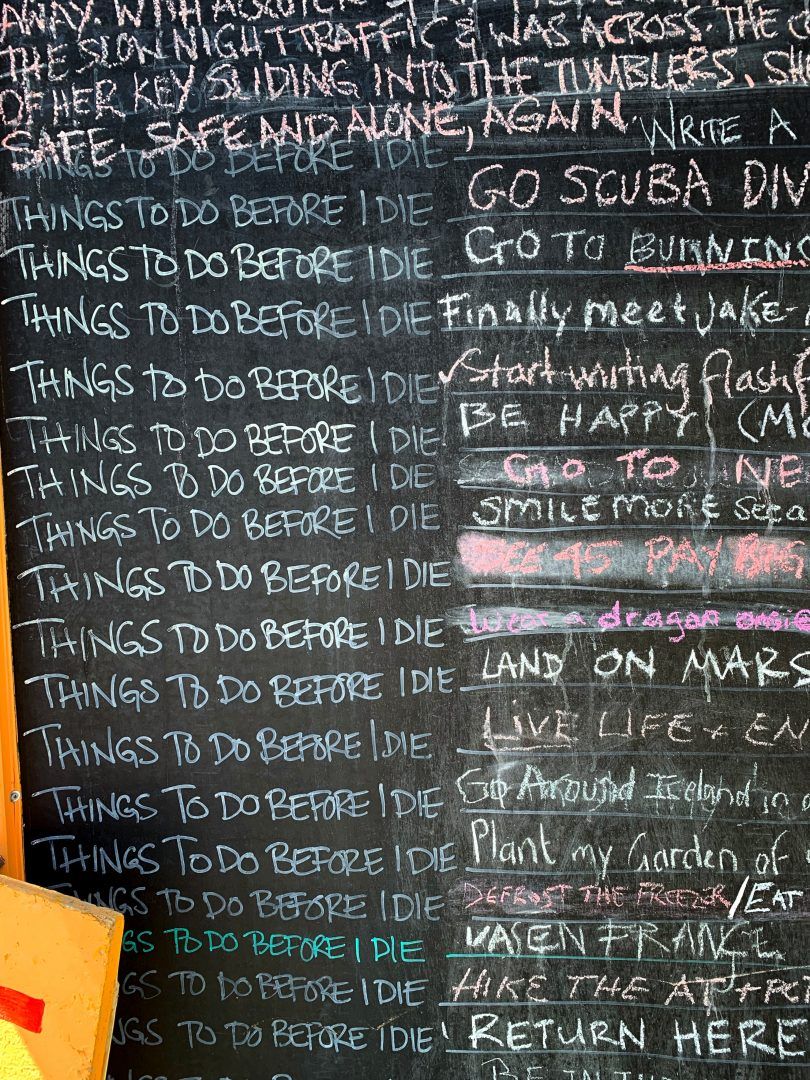 AWAY. WITH A
THE SLOW NIGHT TRAFFIC & WAS ACROSS. THE
OF HER KEY SLIDING INTO THE TUMBLERS. SH
SAFE. SAFE AND ALONE, AGAIN.
THINGS TO DO BEFORE I DIE WRITE A
THINGS TO DO BEFORE I DIE GO SCUBA DIV
THINGS TO DO BEFORE I DIE GO TO BURNING
THINGS TO DO BEFORE I DIE Finally meet Jake-
THINGS TO DO BEFORE I DIE ✓Start writing flash f
THINGS TO DO BEFORE I DIE BE HAPPY (MO
THINGS TO DO BEFORE I DIE GO TO NE
THINGS TO DO BEFORE I DIE SMILE MORE
THINGS TO DO BEFORE I DIE 45 PAY
THINGS TO DO BEFORE I DIE Wear a dragon onsie
THINGS TO DO BEFORE I DIE LAND ON MARS
THINGS TO DO BEFORE I DIE LIVE LIFE + EN
THINGS TO DO BEFORE I DIE Go Around Iceland in
THINGS TO DO BEFORE I DIE Plant my Garden of
THINGS TO DO BEFORE I DIE DEFROST THE FREEZER/EAT
GS TO DO BEFORE I DIE FRANCE
GS TO DO BEFORE I DIE HIKE THE AT + PC
NGS TO DO BEFORE I DIE RETURN HERE
BE IN